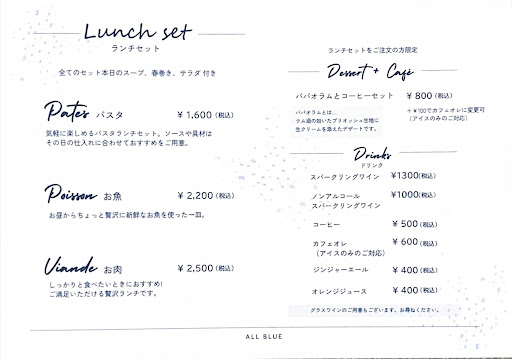 Lunch set
ランチセット
全てのセット本日のスープ、春巻き、サラダ 付き
Pates パスタ ¥ 1,600 (税込)
気軽に楽しめるパスタランチセット。ソースや具材は
その日の仕入れに合わせておすすめをご用意。
Poisson お魚 ¥ 2,200 (税込)
お昼からちょっと贅沢に新鮮なお魚を使った一皿。
Viande お肉 ¥ 2,500 (税込)
しっかりと食べたいときにおすすめ!
ご満足いただける贅沢ランチです。
ランチセットをご注文の方限定
Dessert + Café
ババオラムとコーヒーセット ¥ 800 (税込)
ババオラムとは
ラム酒の効いたブリオッシュ生地に
生クリームを添えたデザートです。
+¥100でカフェオレに変更可
(アイスのみのご対応)
Drinks
ドリンク
スパークリングワイン ¥1300(税込)
ノンアルコール ¥1000(税込)
スパークリングワイン
コーヒー ¥ 500 (税込)
カフェオレ ¥ 600 (税込)
(アイスのみのご対応)
ジンジャーエール ¥ 400 (税込)
オレンジジュース ¥ 400 (税込)
グラスワインのご用意もございます。お尋ねください。
ALL BLUE